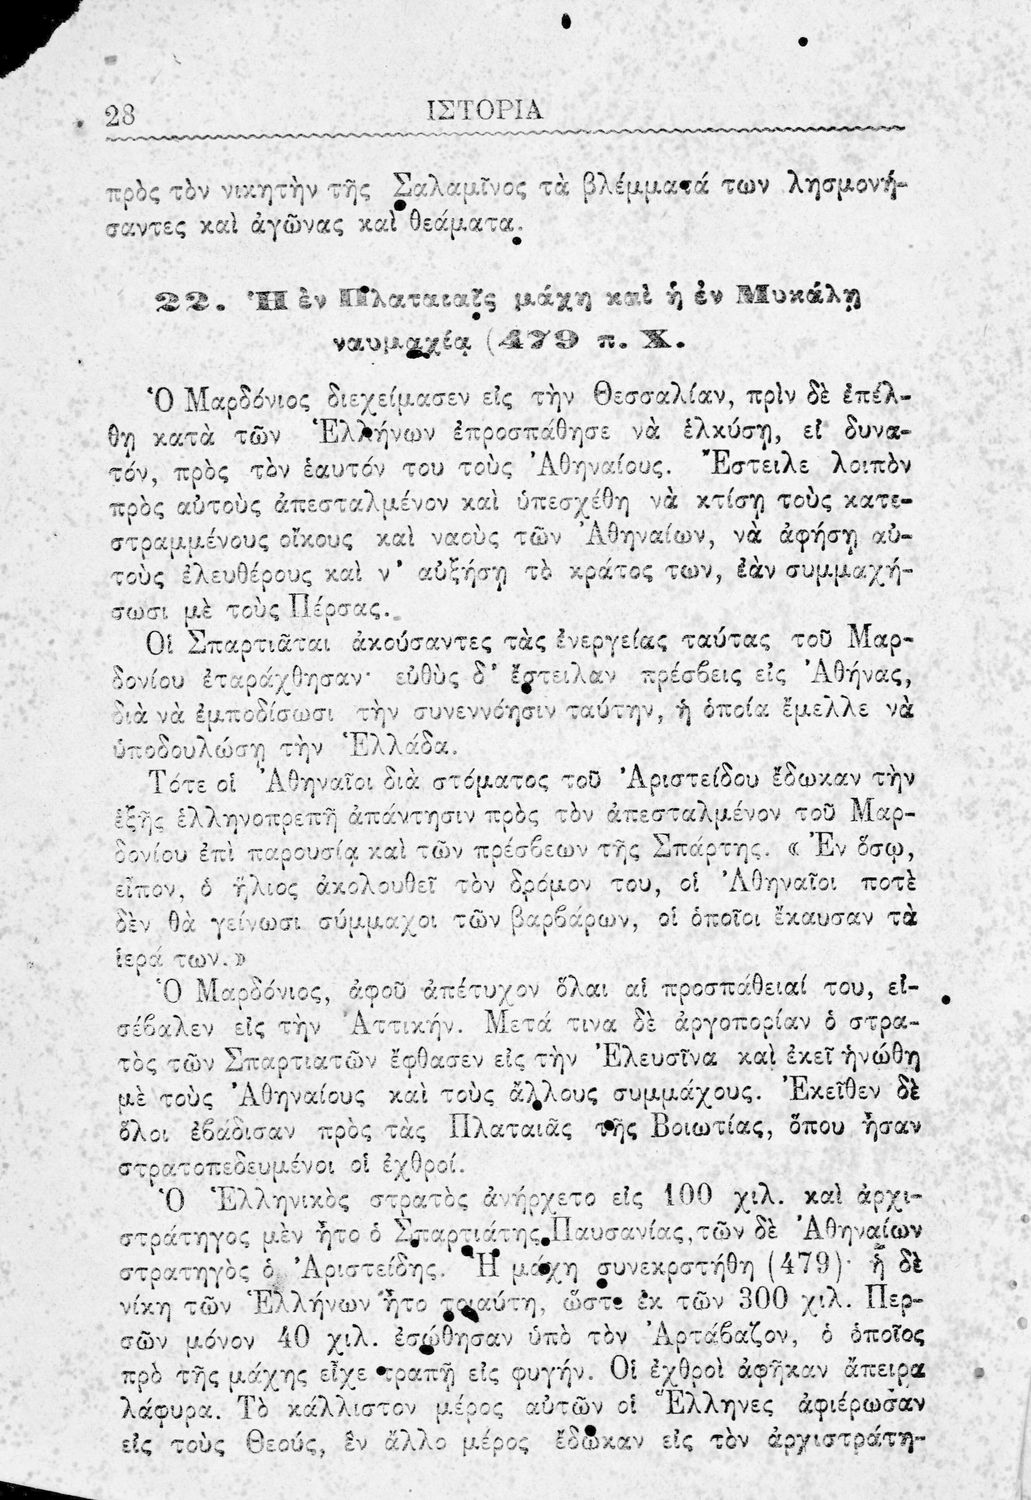 28 ΙΣΤΟΡΙΑ
πρὸς τὸν νικητὴν τῆς Σαλαμῖνος τὰ βλέμματά των λησμονή-
σαντες καὶ ἀγῶνας καὶ θεάματα.
22. Ἡ ἐν Πλαταιαῖς μάχη καὶ ἡ ἐν Μυκάλῃ
ναυμαχίᾳ (479 π. Χ.
Ὁ Μαρδόνιος διεχείμασεν εἰς τὴν Θεσσαλίαν, πρὶν δὲ ἐπέλ-
θη κατὰ τῶν Ἑλλήνων ἐπροσπάθησε νὰ ἑλκύσῃ, εἰ δυνα-
τόν, πρὸς τὸν ἑαυτόν του τοὺς Ἀθηναίους. Ἔστειλε λοιπὸν
πρὸς αὐτοὺς ἀπεσταλμένον καὶ ὑπεσχέθη νὰ κτίσῃ τοὺς κατε-
στραμμένους οἴκους καὶ ναοὺς τῶν Ἀθηναίων, νὰ ἀφήσῃ αὐ-
τοὺς ἐλευθέρους καὶ ν' αὐξήσῃ τὸ κράτος των, ἐὰν συμμαχή-
σωσι μὲ τοὺς Πέρσας.
Οἱ Σπαρτιᾶται ἀκούσαντες τὰς ἐνεργείας ταύτας τοῦ Μαρ-
δονίου ἐταράχθησαν· εὐθὺς δ' ἔστειλαν πρέσβεις εἰς Ἀθήνας,
διὰ νὰ ἐμποδίσωσι τὴν συνεννόησιν ταύτην, ἡ ὁποία ἔμελλε νὰ
ὑποδουλώσῃ τὴν Ἑλλάδα.
Τότε οἱ Ἀθηναῖοι διὰ στόματος τοῦ Ἀριστείδου ἔδωκαν τὴν
ἑξῆς ἑλληνοπρεπῆ ἀπάντησιν πρὸς τὸν ἀπεσταλμένον τοῦ Μαρ-
δονίου ἐπὶ παρουσίᾳ καὶ τῶν πρέσβεων τῆς Σπάρτης. « Ἐν ὅσῳ,
εἶπον, ὁ ἥλιος ἀκολουθεῖ τὸν δρόμον του, οἱ Ἀθηναῖοι ποτὲ
δὲν θὰ γείνωσι σύμμαχοι τῶν βαρβάρων, οἱ ὁποῖοι ἔκαυσαν τὰ
ἱερά των.»
Ὁ Μαρδόνιος, ἀφοῦ ἀπέτυχον ὅλαι αἱ προσπάθειαί του, εἰ-
σέβαλεν εἰς τὴν Ἀττικήν. Μετά τινα δὲ ἀργοπορίαν ὁ στρα-
τὸς τῶν Σπαρτιατῶν ἔφθασεν εἰς τὴν Ἐλευσῖνα καὶ ἐκεῖ ἡνώθη
μὲ τοὺς Ἀθηναίους καὶ τοὺς ἄλλους συμμάχους. Ἐκεῖθεν δὲ
ὅλοι ἐβάδισαν πρὸς τὰς Πλαταιᾶς τῆς Βοιωτίας, ὅπου ἦσαν
στρατοπεδευμένοι οἱ ἐχθροί.
Ὁ Ἑλληνικὸς στρατὸς ἀνήρχετο εἰς 100 χιλ. καὶ ἀρχι-
στράτηγος μὲν ἦτο ὁ Σπαρτιάτης Παυσανίας, τῶν δὲ Ἀθηναίων
στρατηγὸς ὁ Ἀριστείδης. Ἡ μάχη συνεκρστήθη (479)· ἡ δὲ
νίκη τῶν Ἑλλήνων ἦτο τοιαύτη, ὥστε ἐκ τῶν 300 χιλ. Περ-
σῶν μόνον 40 χιλ. ἐσώθησαν ὑπὸ τὸν Ἀρτάβαζον, ὁ ὁποῖος
πρὸ τῆς μάχης εἶχε τραπῆ εἰς φυγήν. Οἱ ἐχθροὶ ἀφῆκαν ἄπειρα
λάφυρα. Τὸ κάλλιστον μέρος αὐτῶν οἱ Ἕλληνες ἀφιέρωσαν
εἰς τοὺς Θεούς, ἓν ἄλλο μέρος ἔδωκαν εἰς τὸν ἀρχιστράτη-